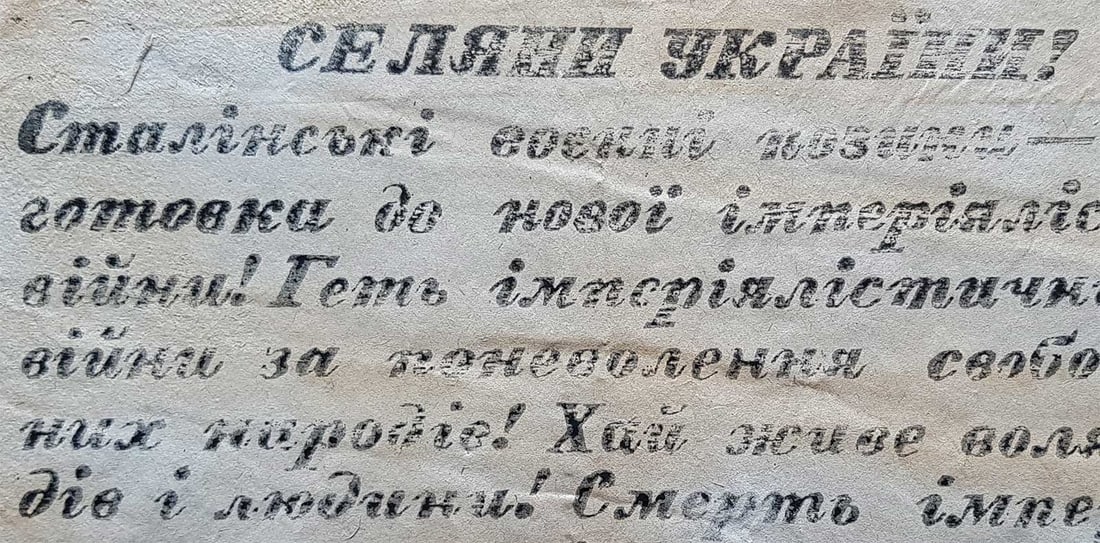 СЕЛЯНИ УКРАЇНИ!
Сталінські воєнні позики —
готовка до нової імперіяліс
війни! Геть імперіялістичн
війни за поневолення свобо
них народів! Хай живе воля
дів і людини! Смерть імпе